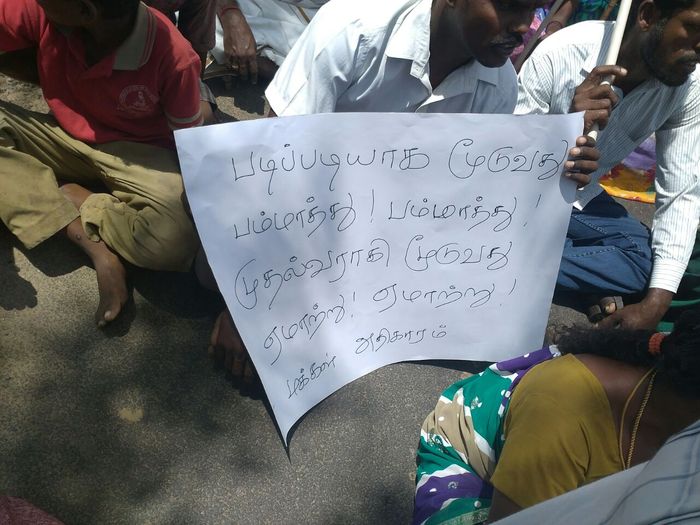 படிப்படியாக மூடுவது
பம்மாத்து! பம்மாத்து!
முதல்வராகி மூடுவது
ஏமாற்று! ஏமாற்று!
மக்கள் அதிகாரம்